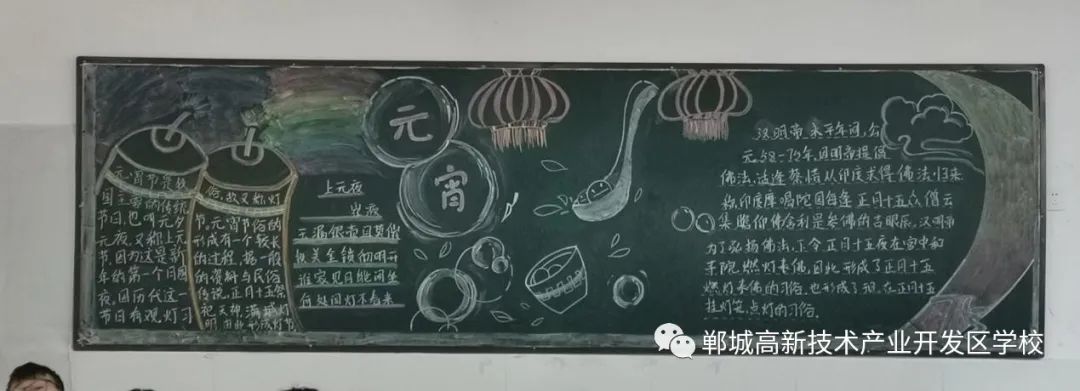 元宵节是我
国主要的传统
节日,也叫元夕
元夜,又称上元
节,因为这是新
年的第一个月圆
夜,因历代这一
节日有观灯习
俗,故又称灯
节。元宵节俗的
形成有一个较长
的过程,据一般
的资料与民俗
传说,正月十五
祀天神,
元
宵
上元夜
崔液
玉漏银壶且莫催
铁关金锁彻明开
谁家见月能闲坐
何处闻灯不看来
汉明帝永平年间,公
元58-75年,因明帝提倡
佛法,适逢蔡愔从印度求得佛法归来
称印度摩喝陀国每逢正月十五众僧云
集瞻仰佛舍利是参佛的吉 汉明帝
为了弘扬佛法,下令正月十五夜在宫中和
寺院燃灯表佛,因此形成了正月十五
燃灯表佛的习俗,也形成了现在正月十五
挂灯笼,点灯的习俗.
郸城高新技术产业开发区学校